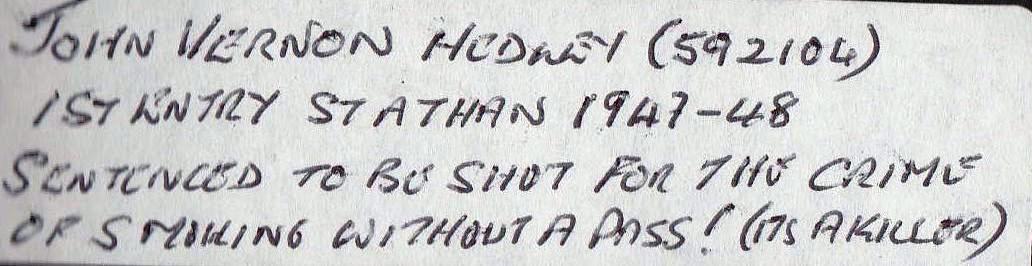 JOHN VERNON HEDLEY (592104)
1ST ENTRY ST ATHAN 1947-48
SENTENCED TO BE SHOT FOR THE CRIME
OF SMOKING WITHOUT A PASS! (ITS A KILLER)